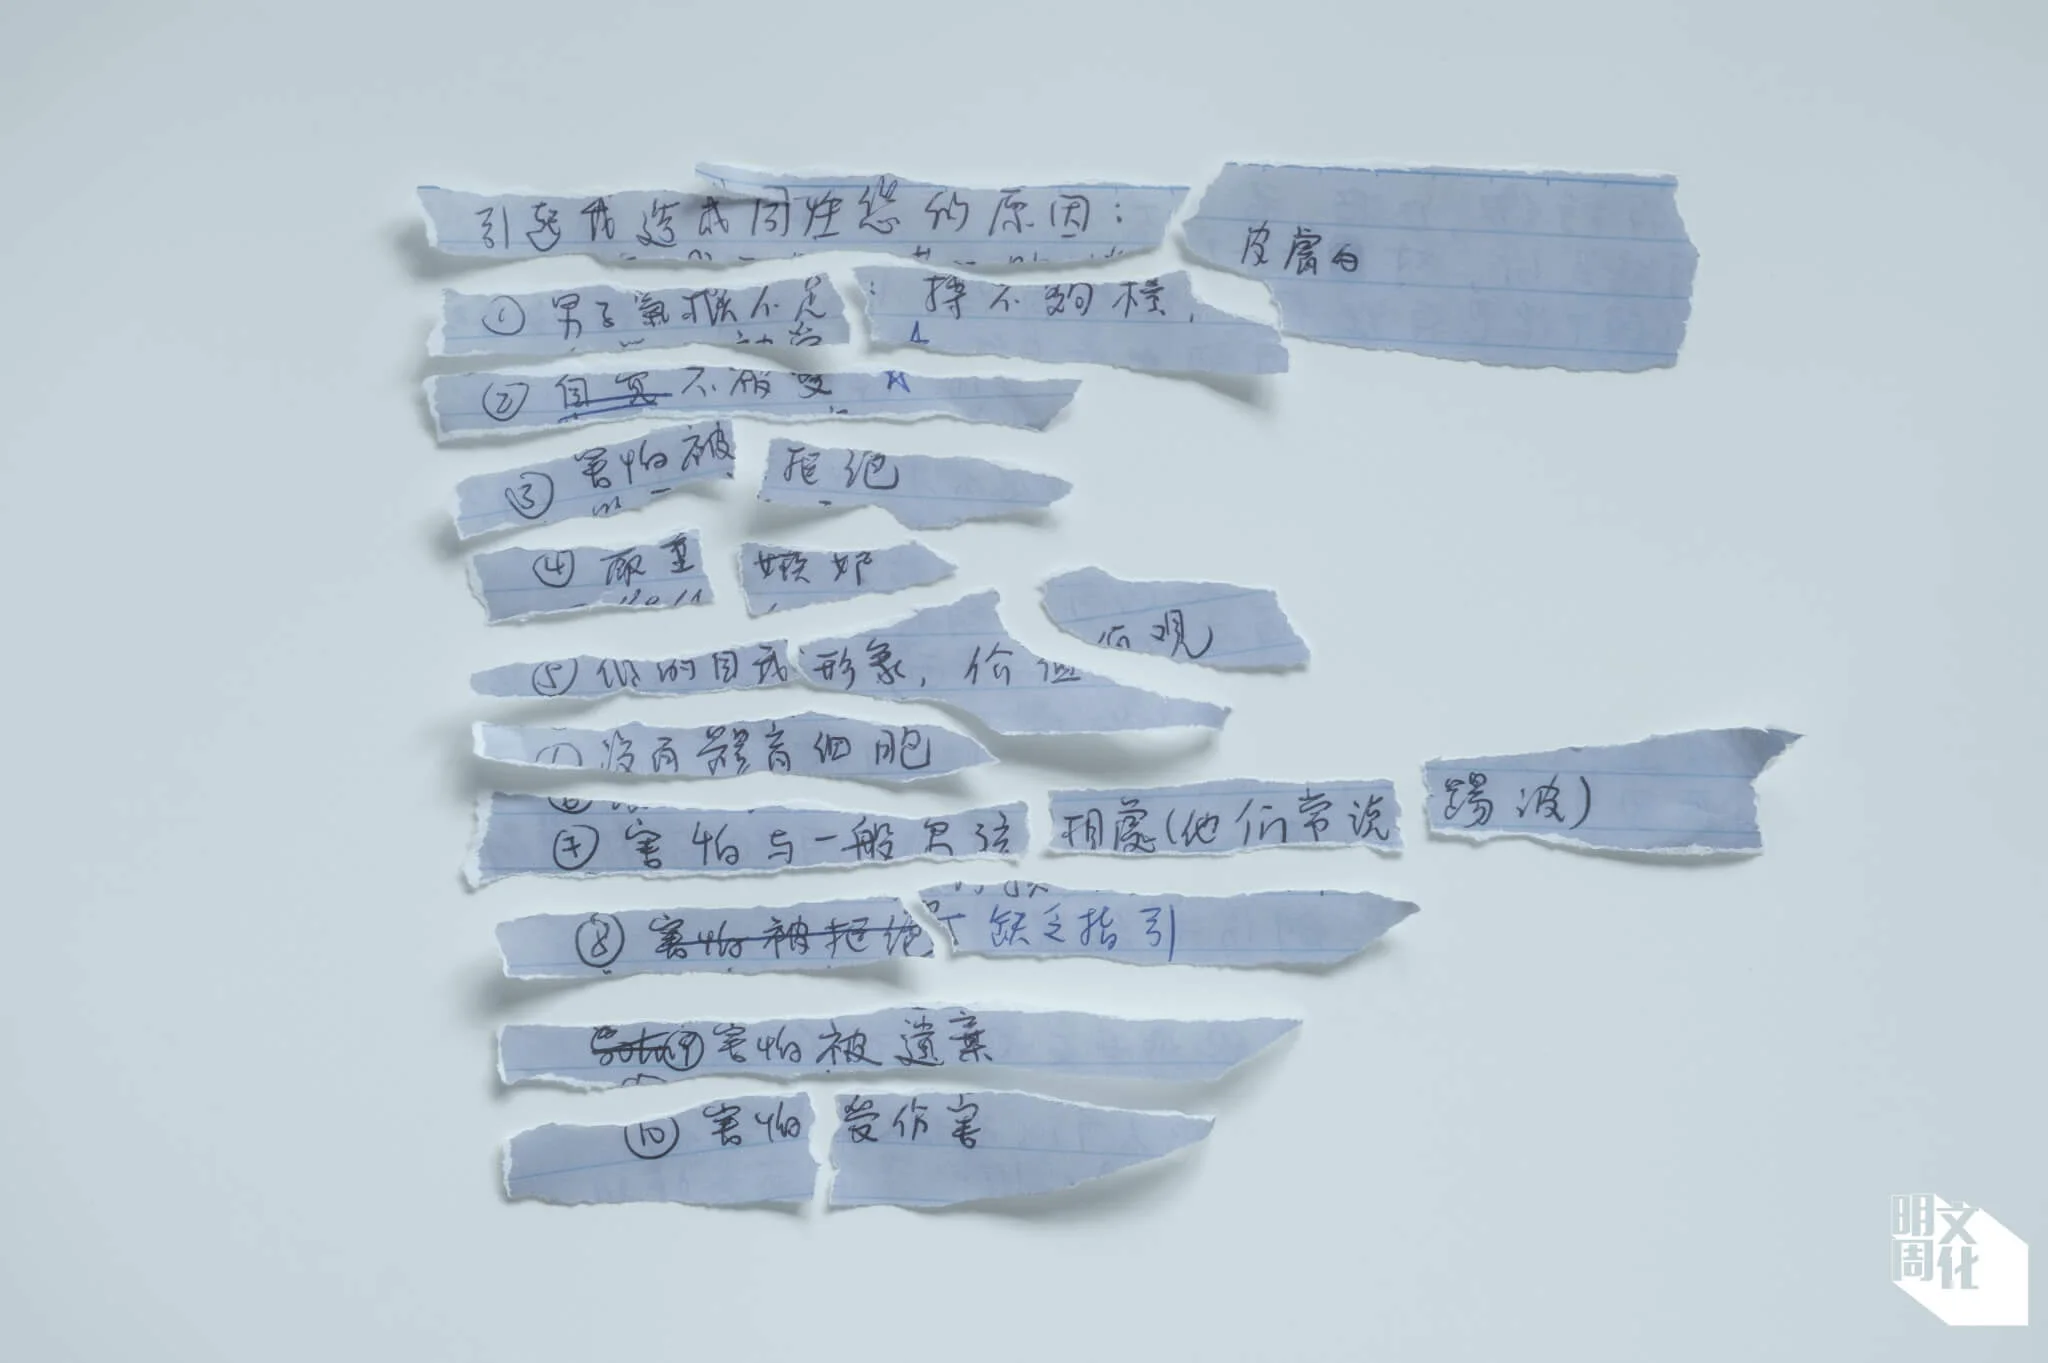 引起我造成同性戀的原因:
① 男子氣概不足: 擇不夠樣, 皮膚白
② 自覓 不被愛
③ 害怕被拒绝
④ 嚴重嫉妒
⑤ 低的自我形象, 价值 价观
没有體育细胞
⑦ 害怕与一般男孩相處(他们常说踢波)
⑧ 害怕被拒绝 缺乏指引
⑨ 害怕被遺棄
⑩ 害怕受伤害
明周文化